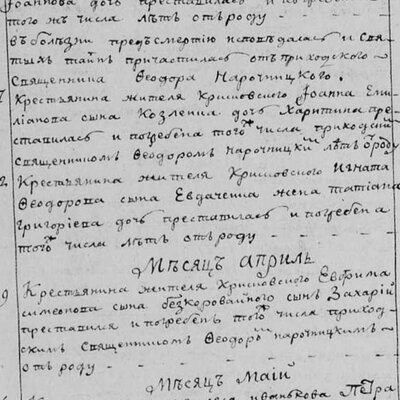 Іоаннова дочъ преставилась и погребен
того жъ числа лѣтъ отъ роду
въ болѣзни предъ смертію исповѣдалась и свя
тыхъ таинъ причастилась отъ приходского
Священника Феодора Нарочницкого.
Крестьянина жителя Крисовского Іоанна Еми
ліанова сына Козленка дочъ Харитина пре
ставилась и погребена того числа приходским
священникомъ Феодоромъ нарочницким лѣтъ отъ роду
2 Крестьянина жителя Крисовского Игната
Феодорова сына Евдаченка жена татіана
григоріева дочъ преставилась и погребена
того числа лѣтъ отъ роду
Мѣсяцъ Априль
9 Крестьянина жителя Крисовского Евфима
симеонова сына безкоровайного сынъ Захарій
преставился и погребенъ того числа приход-
скимъ священникомъ Феодоромъ нарочницкимъ
отъ роду
Мѣсяцъ Маій
Петра